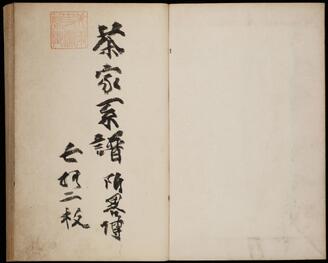 茶家系譜 附畧傳
七拾二枚